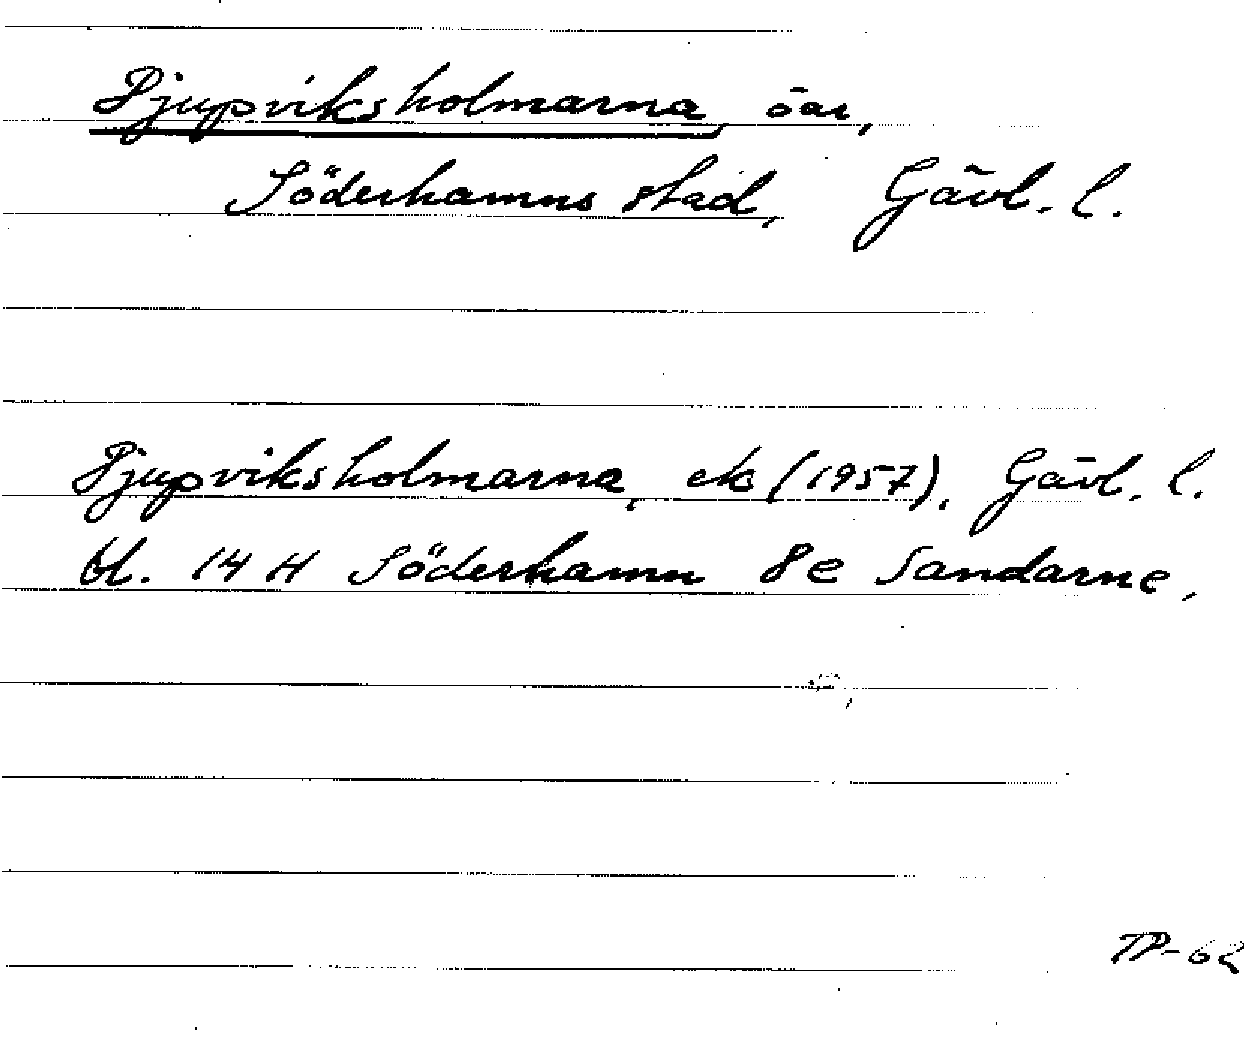 Djupviksholmarna, öar,
Söderhamns stad, Gävl. l.
Djupviksholmarna, ek (1957), Gävl. l.
bl. 14 H Söderhamn 8e Sandarne,
TP-62